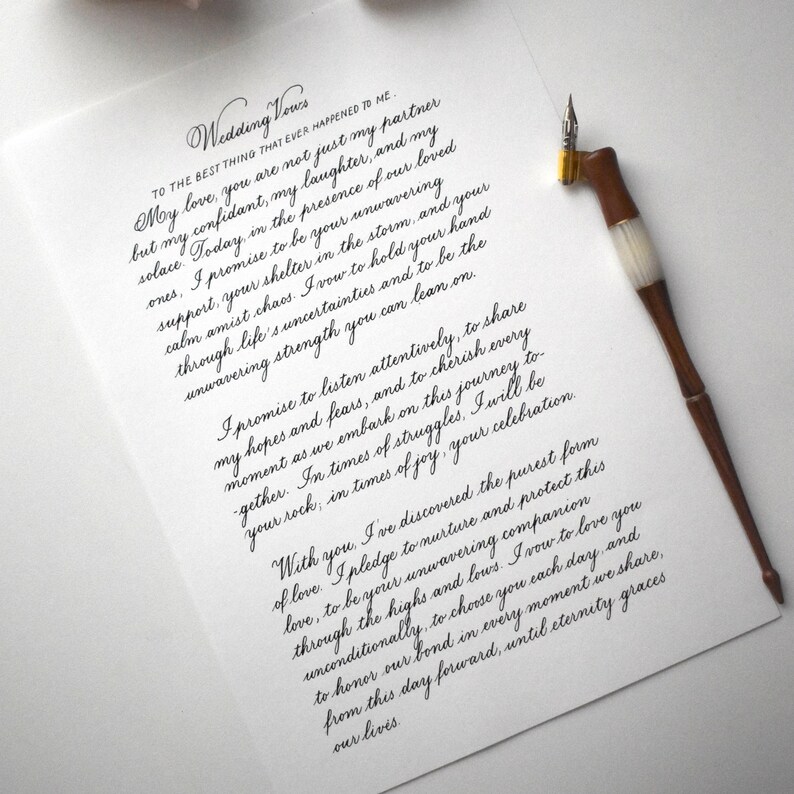 Wedding Vows
TO THE BEST THING THAT EVER HAPPENED TO ME.
My love, you are not just my partner
but my confidant, my laughter, and my
solace. Today, in the presence of our loved
ones, I promise to be your unwavering
support, your shelter in the storm, and your
calm amist chaos. I vow to hold your hand
through life's uncertainties and to be the
unwavering strength you can lean on.
I promise to listen attentively, to share
my hopes and fears, and to cherish every
moment as we embark on this journey to-
-gether. In times of struggles, I will be
your rock; in times of joy, your celebration.
With you, I've discovered the purest form
of love. I pledge to nurture and protect this
love, to be your unwavering companion
through the highs and lows. I vow to love you
unconditionally, to choose you each day, and
to honor our bond in every moment we share,
from this day forward, until eternity graces
our lives.